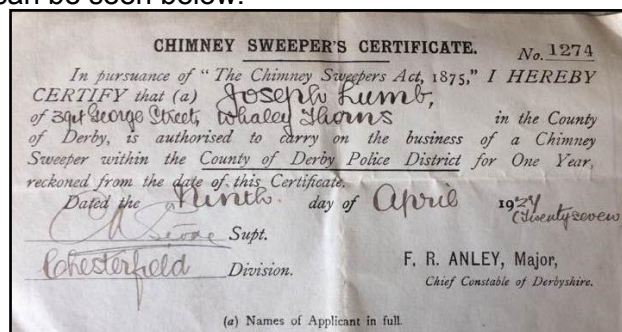 can be seen below:
CHIMNEY SWEEPER'S CERTIFICATE. No. 1274
In pursuance of "The Chimney Sweepers Act, 1875," I HEREBY
CERTIFY that (a) Joseph Lumb,
of George Street, Whaley Thorns in the County
of Derby, is authorised to carry on the business of a Chimney
Sweeper within the County of Derby Police District for One Year,
reckoned from the date of this Certificate.
Dated the Ninth day of April 19
(Twenty seven
Supt.
Chesterfield Division.
F. R. ANLEY, Major,
Chief Constable of Derbyshire.
(a) Names of Applicant in full.